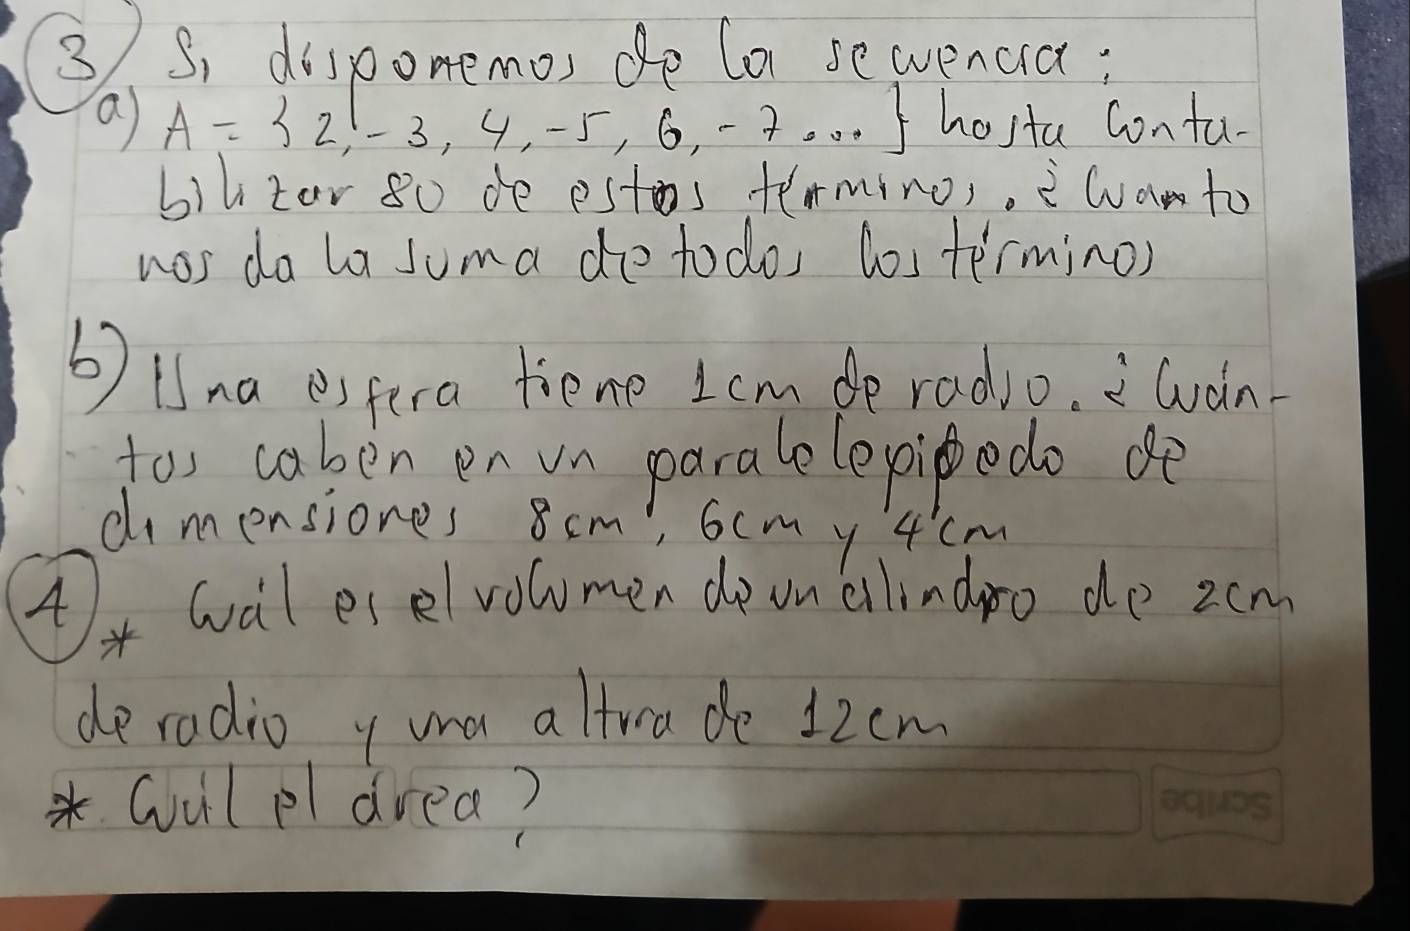 3) Si disponemos de la secuencia:
a) A = { 2, -3, 4, -5, 6, -7 .... } hasta conta-
bilizar 80 de estos términos. ¿Cuanto
nos da la suma de todos los términos
b) Una esfera tiene 1cm de radio. ¿Cuán-
tas caben en un paralelepipedo de
dimensiones 8cm, 6cm y 4cm
4) * Cuál es el volumen de un cilindro de 2cm
de radio y una altura de 12cm
* Cuál el área?
Scribe